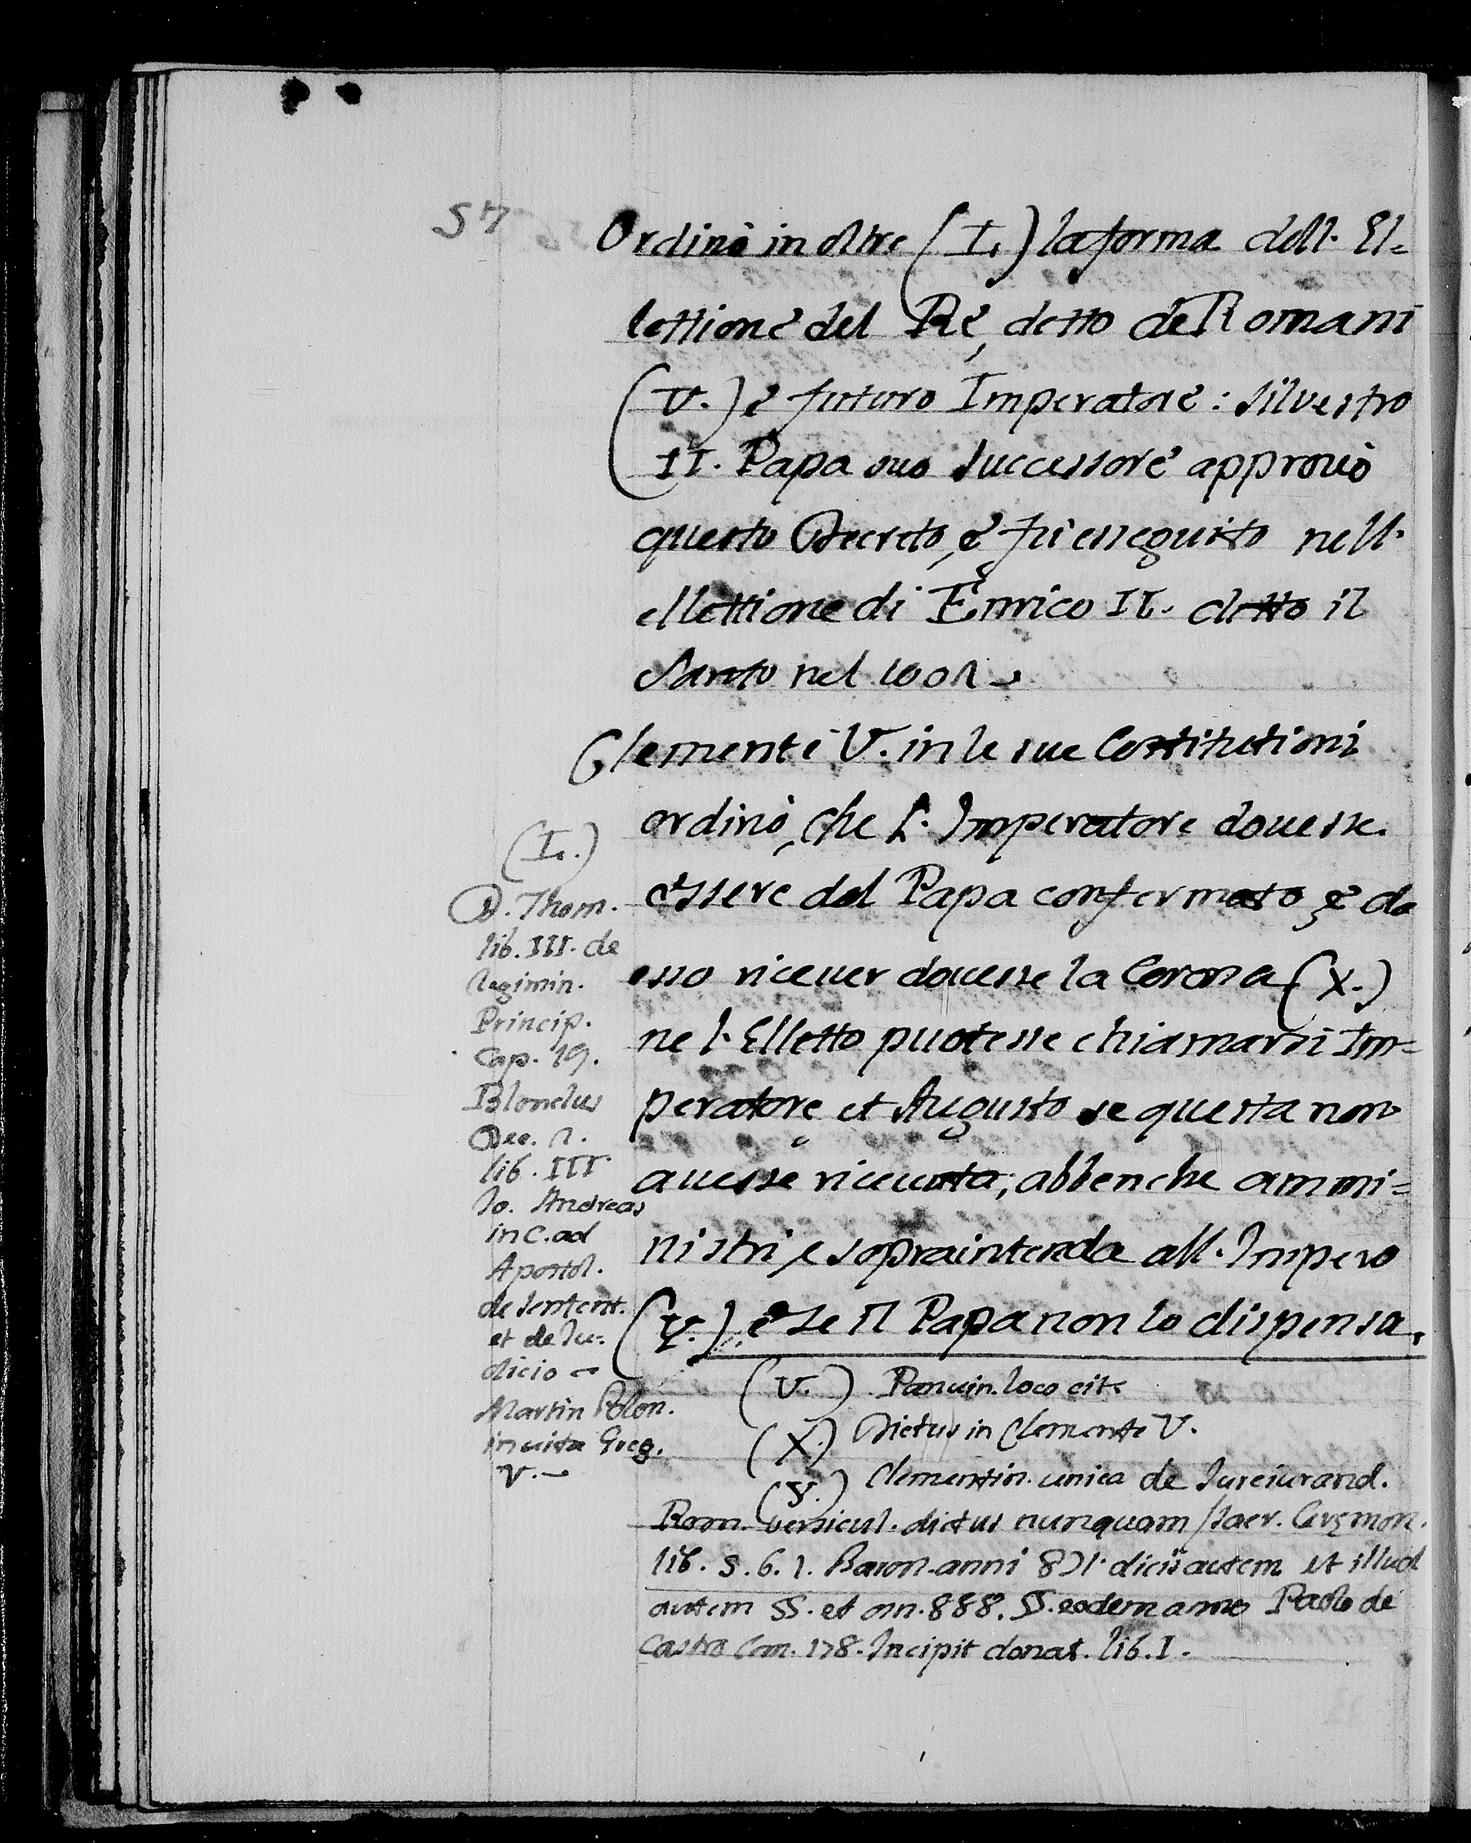 57
Ordinò in oltre (I.) la forma dell. El=
lettione del Rè, detto de Romani
(V.) è futuro Imperatore: Silvestro
II. Papa suo Successore approuò
questo Decreto, è fù esseguito nell.
ellettione di Enrico II. detto il
Santo nel 1002
Clemente V. in le sue Costitutioni
ordinò, che l. Imperatore douesse
essere dal Papa confermato, e da
esso riceuer douesse la Corona (X.)
ne l. Elletto puotesse chiamarsi Im=
peratore, et Augusto se questa non
auesse riceuuta, abbenche ammi=
nistri, e sopraintenda all. Impero
(Y.) è se il Papa non lo dispensa.
(I.)
D. Thom.
lib. III. de
Regimin.
Princip.
Cap. 19.
Blondus
Dec. 2.
lib. III
Jo. Andreas
in C. ad
Apostol.
de sentent.
et de Iu-
dicio
Martin Polon.
in uita Greg.
V.
(V.) Panuin. loco cit.
(X.) Dictus in Clemente V.
(Y.) Clementin. unica de Iureiurand.
Rom. versicul. dictus nunquam Sacr. Cerẹmon.
lib. S. 6. 1. Baron. anni 871. dicis autem et illud
autem SS. et an. 888. SS. eodem anno Paolo de
Castro Con. 178. Incipit donat. lib. I.